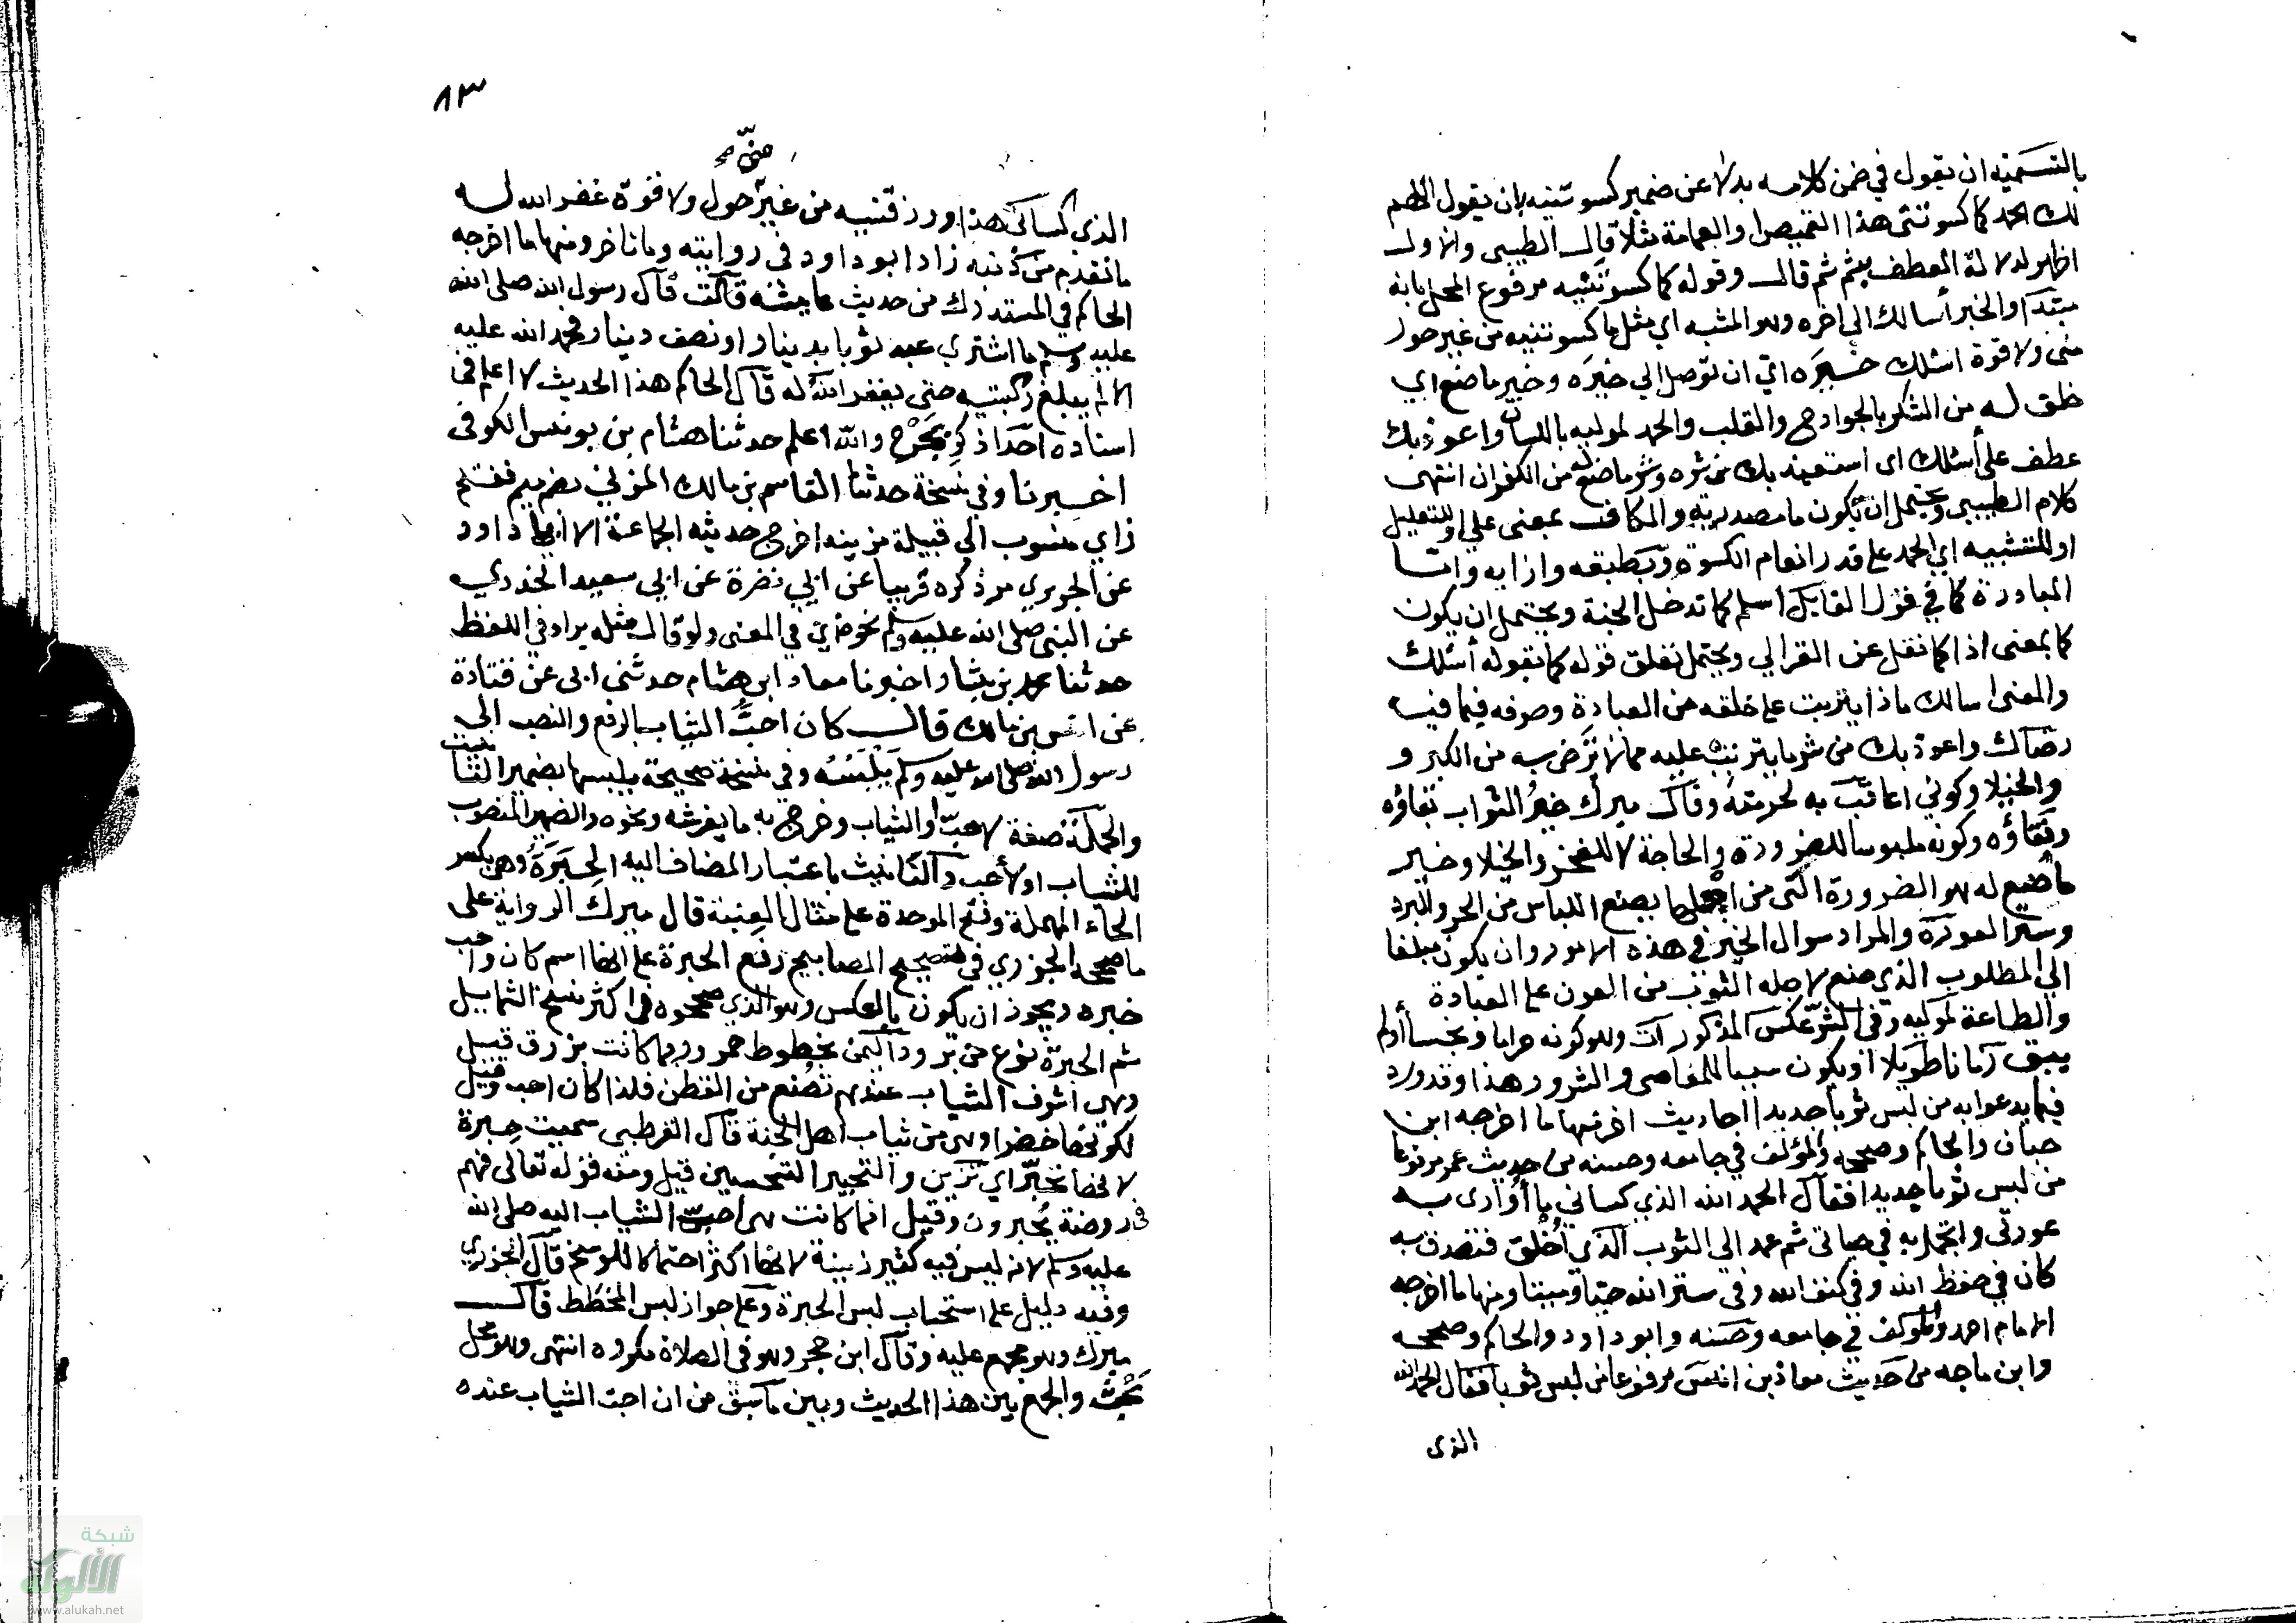 بالتسمية ان يقول في ضمن كلامه بدلا عن ضمير كسوتنيه بان يقول اللهم
لك الحمد كما كسوتني هذا القميص او العمامة مثلا قال الطيبي والاول
اظهر لدلالة العطف بثم ثم قال وقوله كما كسوتنيه مرفوع المحل بانه
مبتدا والخبر أسالك الى اخره وهو المشبه اي مثل ما كسوتنيه من غير حول
مني ولا قوة اسئلك خيره اي ان توصل الي خيره وخير ما صنع اي
خلق له من الشكر بالجوارح والقلب والحمد لموليه باللسان واعوذ بك
عطف على أسئلك اى استعيذ بك من شره وشر ما صنع له من الكفران انتهى
كلام الطيبي ويحتمل ان تكون ما مصدرية والكاف بمعنى على او للتعليل
او للتشبيه اي الحمد على قدر انعام الكسوة وبطبقه وازايه واما
المبادرة كما في قول القايل اسلم كما تدخل الجنة ويحتمل ان يكون
كما بمعنى اذا كما نقل عن الغزالي ويحتمل تعلق قوله كما بقوله أسئلك
والمعنى اسالك ماذا يترتب على خلقه من العبادة وصرفه فيما فيه
رضاك واعوذ بك من شر ما يترتب عليه مما لا ترضى به من الكبر و
والخيلا وكوني اعاقب به لحرمته وقال ميرك خير الثواب نقاؤه
وبقاؤه وكونه ملبوسا للضرورة والحاجة لا للفخر والخيلا وخير
ما صنع له هو الضرورة التى من اجلها يصنع اللباس من الحر والبرد
وستر العورة والمراد سوال الخير في هذه الامور وان يكون مبلغا
الى المطلوب الذي صنع لاجله الثوب من العون على العبادة
والطاعة لموليه وفي الشر عكس المذكورات وهو كونه حراما ونجسا أو لم
يبق زمانا طويلا او يكون سببا للمعاصى والشرور هذا وقد ورد
فيما يدعوا به من لبس ثوبا جديدا احاديث اخر منها ما اخرجه ابن
حبان والحاكم وصححه والمؤلف في جامعه وحسنه من حديث عمر مرفوعا
من لبس ثوبا جديدا فقال الحمد الله الذي كساني ما أوارى به
عورتى واتجمل به في حياتى ثم عمد الى الثوب الذي أخلق فتصدق به
كان في حفظ الله وفي كنف الله وفى ستر الله حيا وميتا ومنها ما اخرجه
الامام احمد والمولف في جامعه وحسنه وابو داود والحاكم وصححه
وابن ماجه من حديث معاذ بن انس مرفوعا من لبس ثوبا فقال الحمد الله
الذى
٨٣
مني صح
الذى كساني هذا ورزقنيه من غير حول ولا قوة غفر الله له
ما تقدم من ذنبه زاد ابو داود فى روايته وما تاخر ومنها ما اخرجه
الحاكم في المستدرك من حديث عايشة قالت قال رسول الله صلى الله
عليه وسلم ما اشترى عبد ثوبا بدينار او نصف دينار فحمد الله عليه
الا لم يبلغ ركبتيه حتى يغفر الله له قال الحاكم هذا الحديث لا اعلم في
اسناده احدا ذكر بجرح والله اعلم حدثنا هشام بن يونس الكوفى
اخبرنا وفي نسخة حدثنا القاسم بن مالك المزني بضم ميم ففتح
زاي منسوب الى قبيلة مزينه اخرج حديثه الجماعة الا ابا داود
عن الجريري مر ذكره قريبا عن ابي نضرة عن ابي سعيد الخدري
عن النبى صلى الله عليه وسلم نحوه اي في المعنى ولو قال مثله يراد في اللفظ
حدثنا محمد بن بشار اخبرنا معاذ ابن هشام حدثنى ابى عن قتادة
عن انس بن مالك قال كان احب الثياب بالرفع والنصب الى
رسول الله صلى الله عليه وسلم يلبسه وفى نسخة صحيحة يلبسها بضمير التانيث
والجملة صفة لاحب او الثياب وخرج به ما يفرشه ونحوه والضمير المنصوب
للثياب او لأحب والتانيث باعتبار المضاف اليه الحبرة وهى بكسر
الحاء المهملة وفتح الموحدة على مثال العنبة قال ميرك الرواية على
ما صححه الجزري في تصحيح المصابيح رفع الحبرة على انها اسم كان واحب
خبره ويجوز ان يكون بالعكس وهو الذي صححوه في اكثر نسخ الشمايل
ثم الحبرة نوع من برود اليمن بخطوط حمر وربما كانت بزرق قيل
وهي اشرف الثياب عندهم تصنع من القطن فلذا كان احب وقيل
لكونها خضرا وهى من ثياب اهل الجنة قال القرطبى سميت حبرة
لانها تحبر اي تزين والتحبير التحسين قيل ومنه قوله تعالى فهم
فى روضة يحبرون وقيل انما كانت هى احب الثياب اليه صلى الله
عليه وسلم لانه ليس فيه كثير زينة لانها اكثر احتمالا للوسخ قال الجزري
وفيه دليل على استحباب لبس الحبرة وعلى جواز لبس المخطط قال
ميرك وهو مجمع عليه وقال ابن حجر وهو فى الصلاة مكروه انتهى وهو محل
بحث والجمع بين هذا الحديث وبين ما سبق من ان احب الثياب عنده
شبكة
الألوكة
www.alukah.net